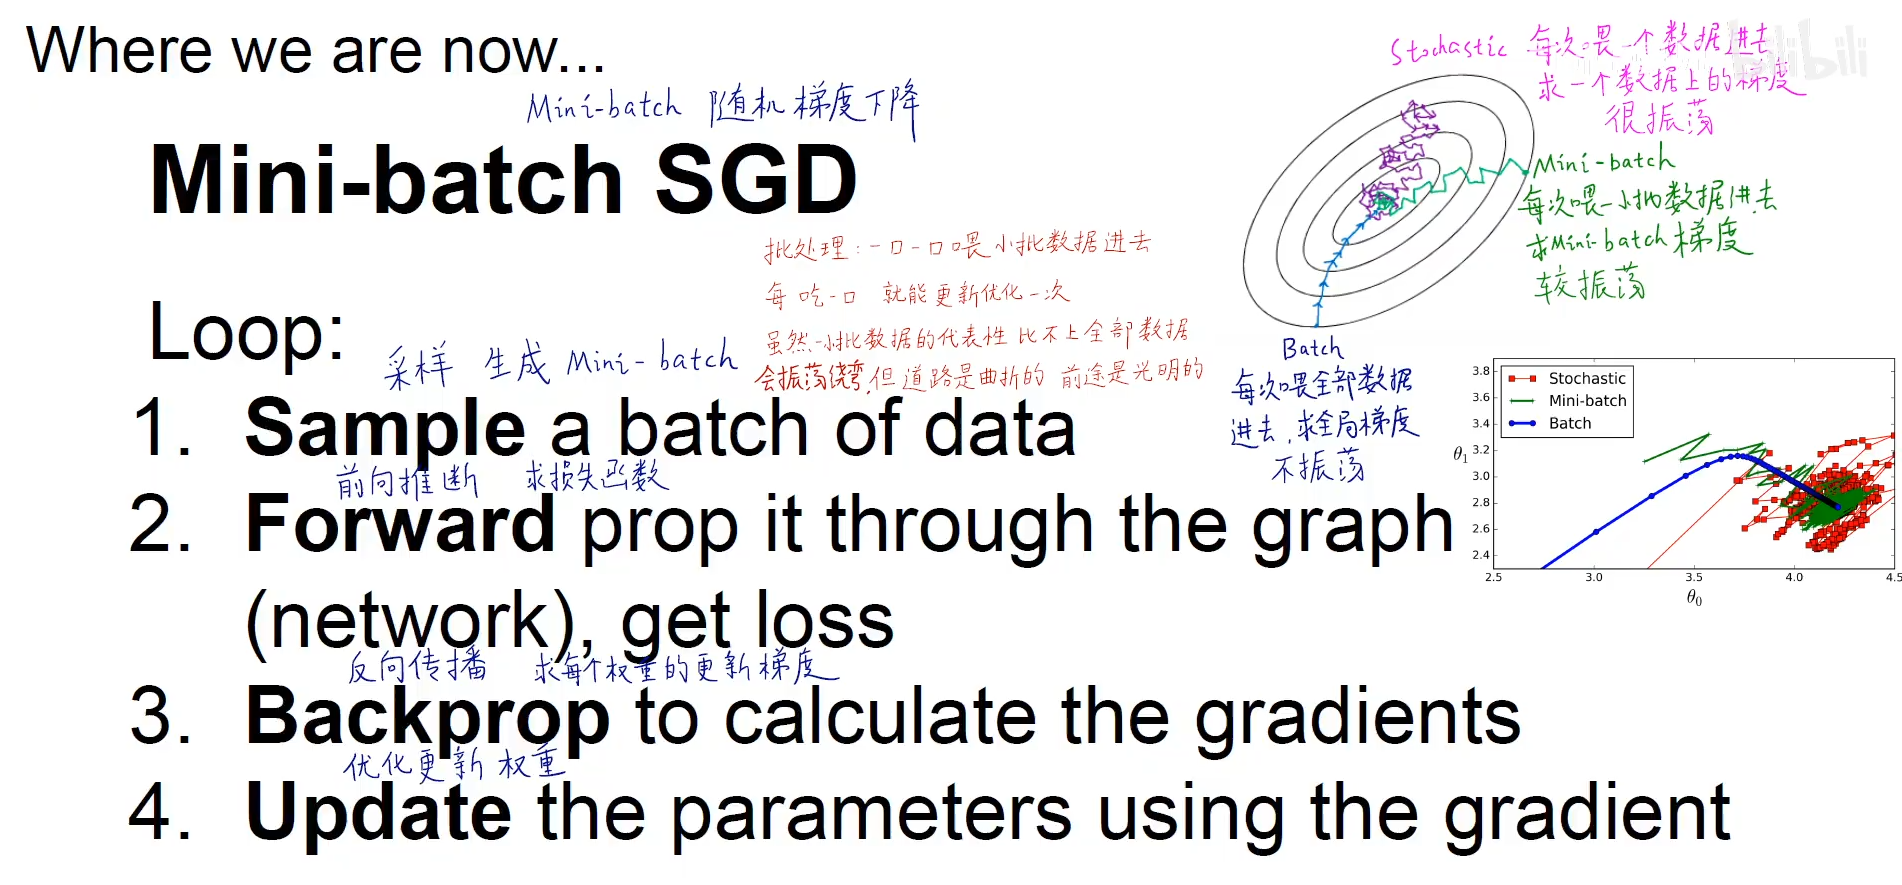 Where we are now...
Mini-batch 随机梯度下降
Mini-batch SGD
批处理：一口一口喂小批数据进去
每吃一口 就能更新优化一次
虽然一小批数据的代表性比不上全部数据
会振荡绕弯,但道路是曲折的 前途是光明的
Loop:
采样 生成 Mini-batch
1. Sample a batch of data
前向推断 求损失函数
2. Forward prop it through the graph
(network), get loss
反向传播 求每个权重的更新梯度
3. Backprop to calculate the gradients
优化更新权重
4. Update the parameters using the gradient
bilibili
Stochastic 每次喂一个数据进去
求一个数据上的梯度
很振荡
Mini-batch
每次喂一小批数据进去
求Mini-batch梯度
较振荡
Batch
每次喂全部数据
进去,求全局梯度
不振荡
Stochastic
Mini-batch
Batch
3.8
3.6
3.4
3.2
3.0
2.8
2.6
2.4
θ1
2.5 3.0 3.5 4.0 4.5
θ0